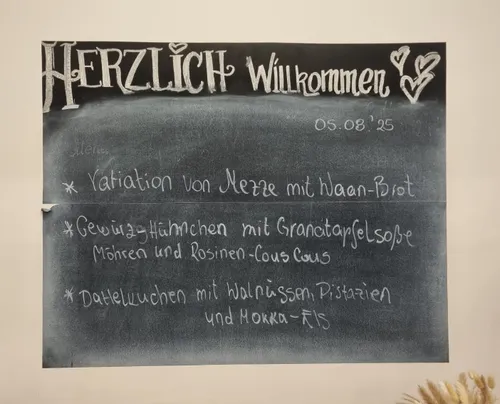 HERZLICH Willkommen
05.08.'25
Menü
* Variation von Mezze mit Naan-Brot
* Gewürz-Hühnchen mit Granatapfelsoße
Möhren und Rosinen-Cous Cous
* Dattelkuchen mit Walnüssen, Pistazien
und Mokka-Eis